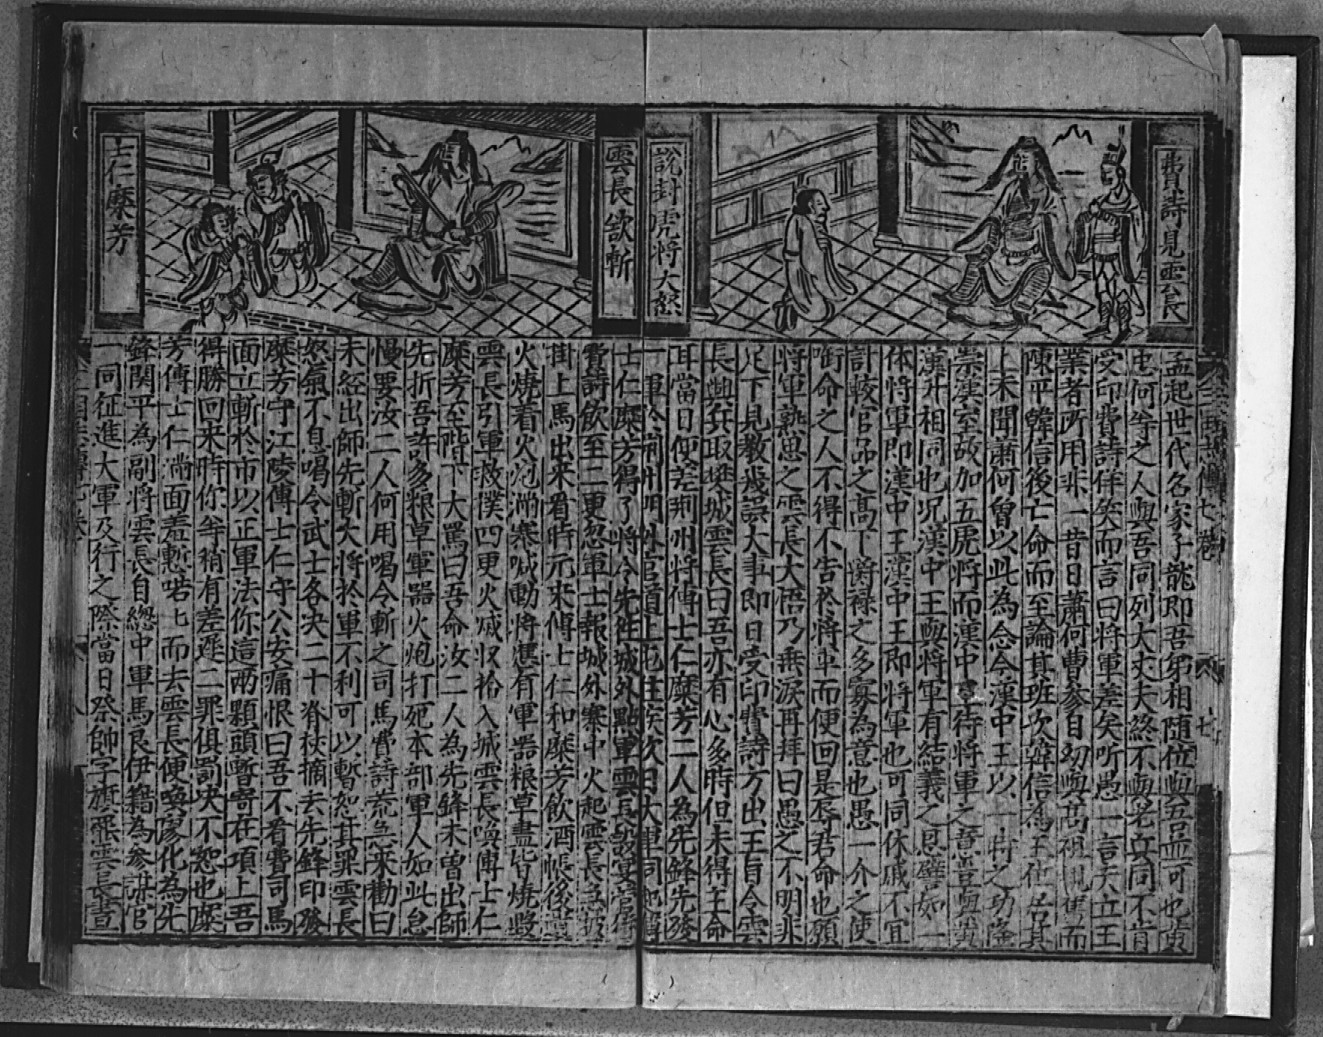 費壽見雲長
說封虎將大怒
孟起世代名家子龍即吾弟相隨位與吾並可也黃
忠何等之人與吾同列大丈夫終不與老兵同不肯
受印費詩佯笑而言曰將軍差矣听愚一言夫立王
業者所用非一昔日蕭何曹參自幼與高祖訊舊而
陳平韓信後亡命而至論其班次韓信為王位居其
上未聞蕭何曾以此為念今漢中王以一時之功隆
崇漢室故加五虎將而漢中待將軍之意豈與黃
漢升相同也况漢中王與將軍有結義之恩譬如一
体將軍即漢中王漢中王即將軍也可同休戚不宜
計較官品之髙下爵祿之多寡為意也愚一介之使
啣命之人不得不告於將軍而便回是辱君命也願
將軍熟思之雲長大悟乃垂淚再拜曰愚之不明非
足下見教幾誤大事即日受印費詩方出王旨令雲
長與兵取樊城雲長曰吾亦有心多時但未得主命
耳當日便差荆州將傅士仁糜芳二人為先鋒先發
一軍於荊州
雲長欲斬
士仁糜芳
士仁糜芳得了將令先往城外點軍雲長設宴管待
費詩飲至二更忽軍士報城外寨中火起雲長急披
掛上馬出來看時元來傅士仁和糜芳飲酒帳後遺
火燒着火炮滿寨喊動將應有軍噐粮草盡皆燒毀
雲長引軍救撲四更火滅収拾入城雲長喚傅士仁
糜芳至階下大罵曰吾命汝二人為先鋒未曾出師
先折吾許多粮草軍器火炮打死本部軍人如此怠
慢要汝二人何用喝令斬之司馬費詩荒急來勸曰
未經出師先斬大將於軍不利可以暫恕其罪雲長
怒氣不息喝令武士各决二十脊杖摘去先鋒印發
糜芳守江陵傅士仁守公安痛恨曰吾不看費司馬
面立斬於市以正軍法你這兩顆頭暫寄在項上吾
得勝回來時你等稍有差遲二罪俱罰决不恕也糜
芳傅士仁滿面羞慙喏匕而去雲長便喚廖化為先
鋒関平為副將雲長自總中軍馬良伊籍為參謀官
一同征進大軍及行之際當日祭帥字旗罷雲長晝